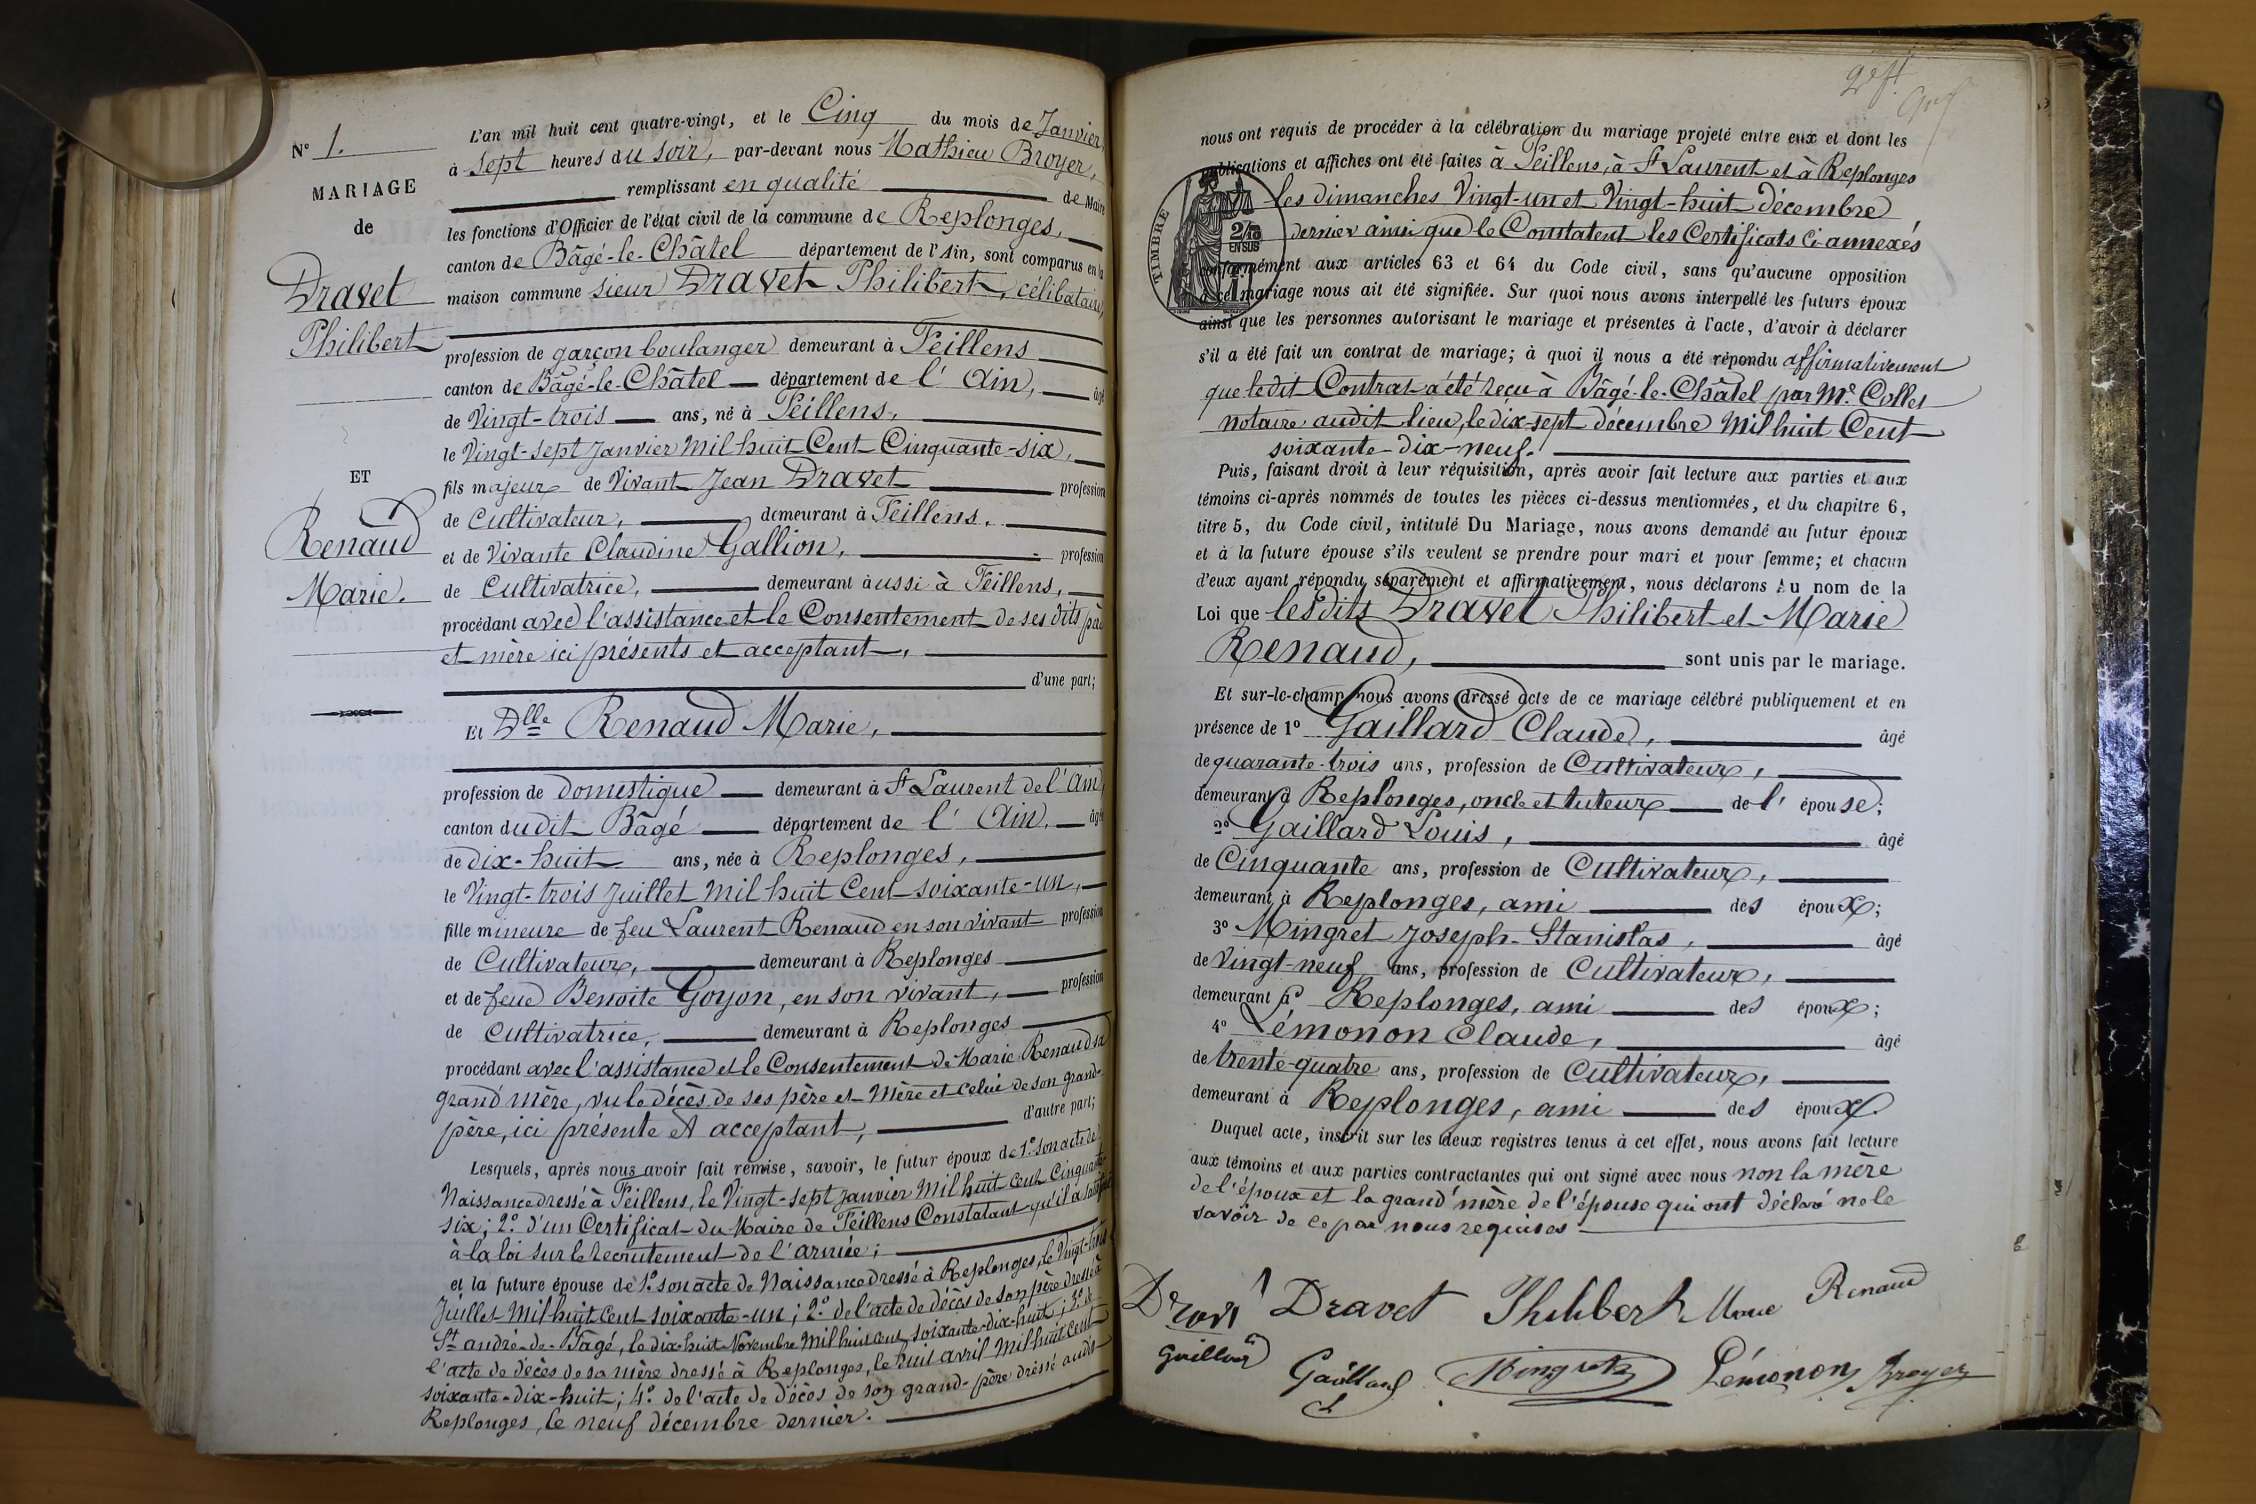 N° 1.
MARIAGE
de
Dravet
Philibert
ET
Renaud
Marie.
L'an mil huit cent quatre-vingt, et le Cinq du mois de Janvier,
à sept heures du soir, par-devant nous Mathieu Broyer,
remplissant en qualité de Maire
les fonctions d'Officier de l'état civil de la commune de Replonges,
canton de Bâgé-le-Châtel département de l'Ain, sont comparus en la
maison commune sieur Dravet Philibert, célibataire,
profession de garçon boulanger demeurant à Feillens
canton de Bâgé-le-Châtel département de l'Ain, âgé
de Vingt-trois ans, né à Feillens,
le Vingt-sept Janvier Mil huit Cent Cinquante-six,
fils majeur de Vivant Jean Dravet profession
de Cultivateur, demeurant à Feillens.
et de Vivante Claudine Gallion, profession
de Cultivatrice, demeurant aussi à Feillens,
procédant avec l'assistance et le Consentement de ses dits père
et mère ici présents et acceptant,
d'une part;
Et Dlle Renaud Marie,
profession de domestique demeurant à St Laurent de l'Ain
canton dudit Bâgé département de l'Ain, âgée
de dix-huit ans, née à Replonges,
le Vingt-trois Juillet Mil huit Cent soixante-un,
fille mineure de feu Laurent Renaud en son vivant profession
de Cultivateur, demeurant à Replonges
et de feue Benoite Goyon, en son vivant, profession
de Cultivatrice, demeurant à Replonges
procédant avec l'assistance et le Consentement de Marie Renaud sa
grand'mère, vu le décès de ses père et Mère et celui de son grand-
père, ici présente et acceptant, d'autre part;
Lesquels, après nous avoir fait remise, savoir, le futur époux de 1° son acte de
Naissance dressé à Feillens, le Vingt-sept Janvier Mil huit Cent Cinquante-
six; 2° d'un Certificat du Maire de Feillens Constatant qu'il a satisfait
à la loi sur le recrutement de l'armée;
et la future épouse de 1° son acte de Naissance dressé à Replonges, le Vingt-trois
Juillet Mil huit Cent soixante-un; 2° de l'acte de décès de son père dressé à
St andré-de-Bâgé, le dix-huit Novembre Mil huit Cent soixante-dix-huit; 3° de
l'acte de décès de sa mère dressé à Replonges, le huit avril Mil huit Cent
soixante-dix-huit; 4° de l'acte de décès de son grand-père dressé audit
Replonges, le neuf décembre dernier.
nous ont requis de procéder à la célébration du mariage projeté entre eux et dont les
publications et affiches ont été faites à Feillens, à St Laurent et à Replonges
les dimanches Vingt-un et Vingt-huit décembre
dernier ainsi que le Constatent les Certificats ci-annexés
TIMBRE
2/10
EN SUS
conformément aux articles 63 et 64 du Code civil, sans qu'aucune opposition
à ce mariage nous ait été signifiée. Sur quoi nous avons interpellé les futurs époux
ainsi que les personnes autorisant le mariage et présentes à l'acte, d'avoir à déclarer
s'il a été fait un contrat de mariage; à quoi il nous a été répondu affirmativement
que le dit Contrat a été reçu à Bâgé-le-Châtel par Me Collet
notaire audit lieu, le dix-sept décembre Mil huit Cent
soixante-dix-neuf.
Puis, faisant droit à leur réquisition, après avoir fait lecture aux parties et aux
témoins ci-après nommés de toutes les pièces ci-dessus mentionnées, et du chapitre 6,
titre 5, du Code civil, intitulé Du Mariage, nous avons demandé au futur époux
et à la future épouse s'ils veulent se prendre pour mari et pour femme; et chacun
d'eux ayant répondu séparément et affirmativement, nous déclarons Au nom de la
Loi que lesdits Dravet Philibert et Marie
Renaud, sont unis par le mariage.
Et sur-le-champ nous avons dressé acte de ce mariage célébré publiquement et en
présence de 1° Gaillard Claude, âgé
de quarante-trois ans, profession de Cultivateur,
demeurant à Replonges, oncle et tuteur de l'épouse;
2° Gaillard Louis, âgé
de Cinquante ans, profession de Cultivateur,
demeurant à Replonges, ami des époux;
3° Mingret Joseph-Stanislas, âgé
de Vingt-neuf ans, profession de Cultivateur,
demeurant à Replonges, ami des époux;
4° Lémonon Claude, âgé
de trente-quatre ans, profession de Cultivateur,
demeurant à Replonges, ami des époux.
Duquel acte, inscrit sur les deux registres tenus à cet effet, nous avons fait lecture
aux témoins et aux parties contractantes qui ont signé avec nous non la mère
de l'époux et la grand'mère de l'épouse qui ont déclaré ne le
savoir de ce par nous requises
Dravet Philibert Marie Renaud
Gaillard Mingret Lémonon Broyer